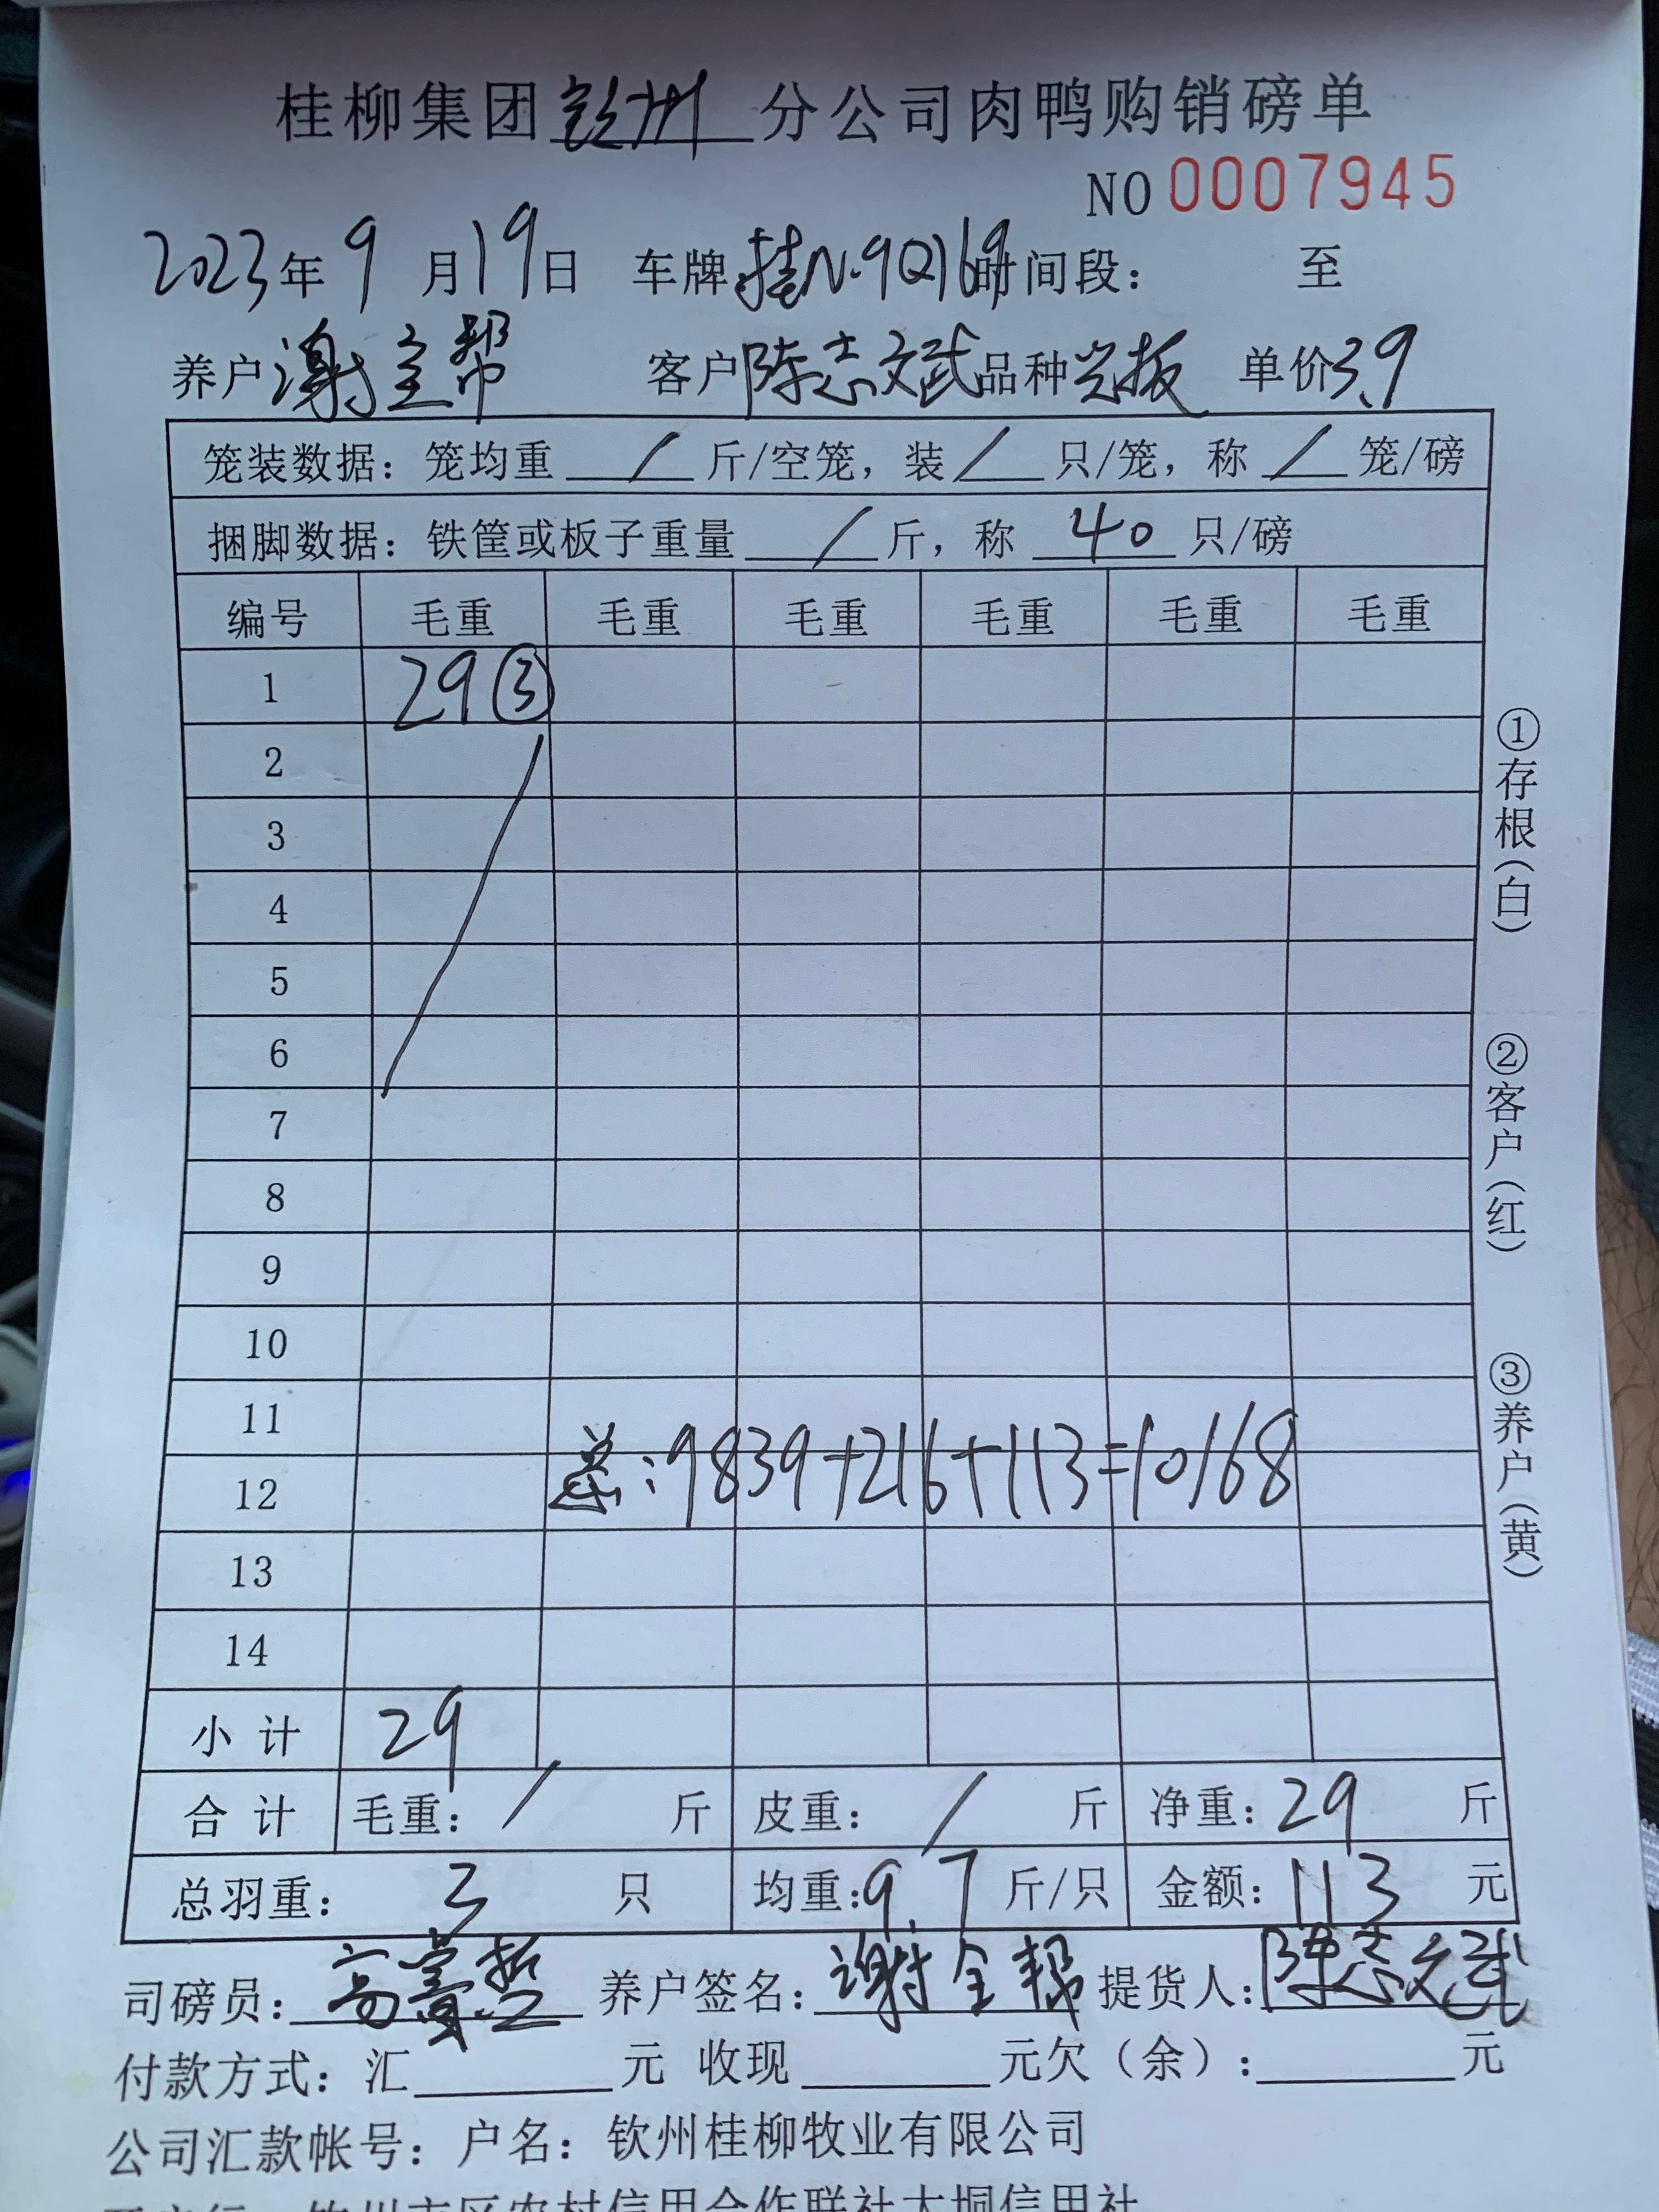 桂柳集团钦州分公司肉鸭购销磅单
NO 0007945
2023年9月19日 车牌桂N·9Q169时间段： 至
养户谢全帮 客户陈志文武品种 单价3.9
笼装数据：笼均重 / 斤/空笼，装 / 只/笼，称 / 笼/磅
捆脚数据：铁筐或板子重量 / 斤，称 40 只/磅
编号 毛重 毛重 毛重 毛重 毛重 毛重
1 29 ③
2
3
4
5
6
7
8
9
10
11
总：9839+216+113=10168
12
13
14
小计 29
合计 毛重： / 斤 皮重： / 斤 净重：29 斤
总羽重： 3 只 均重：9.7 斤/只 金额：113 元
司磅员： 养户签名：谢全帮 提货人：陈志文武
付款方式：汇 元 收现 元欠（余）： 元
公司汇款帐号：户名：钦州桂柳牧业有限公司
①存根（白）
②客户（红）
③养户（黄）